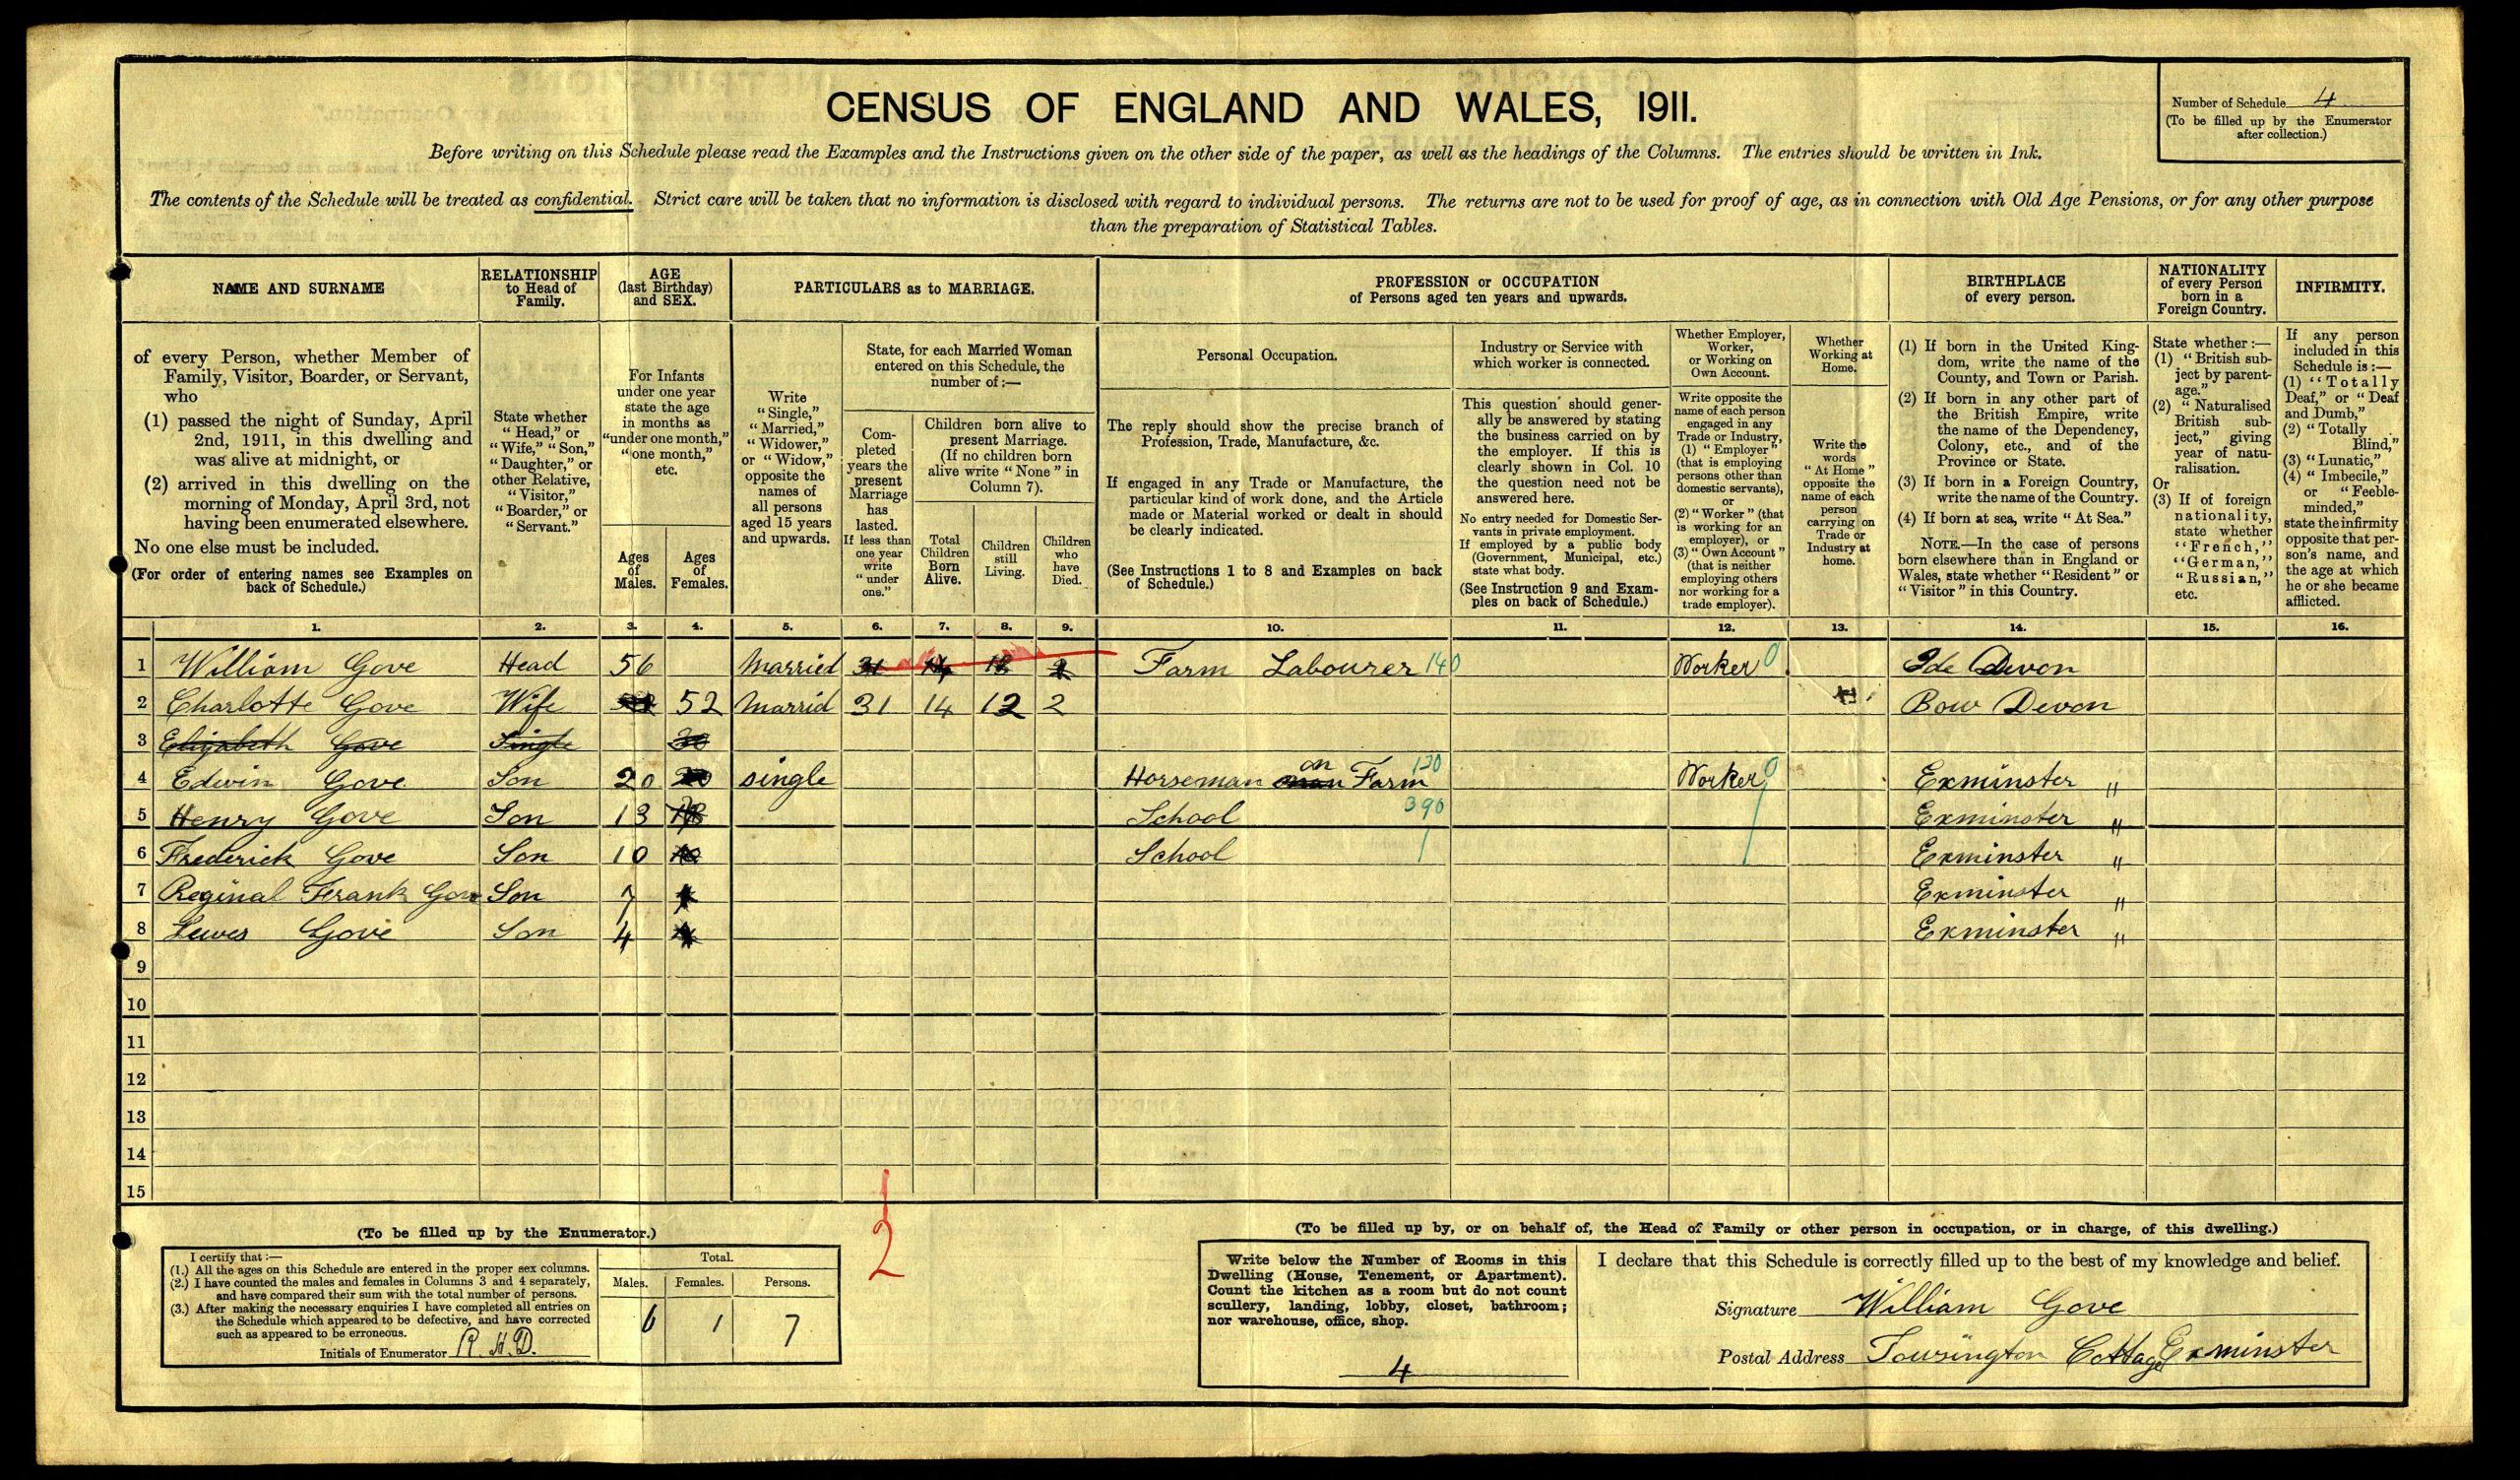 CENSUS OF ENGLAND AND WALES, 1911.
Number of Schedule 4
(To be filled up by the Enumerator
after collection.)
Before writing on this Schedule please read the Examples and the Instructions given on the other side of the paper, as well as the headings of the Columns. The entries should be written in Ink.
The contents of the Schedule will be treated as confidential. Strict care will be taken that no information is disclosed with regard to individual persons. The returns are not to be used for proof of age, as in connection with Old Age Pensions, or for any other purpose
than the preparation of Statistical Tables.
NAME AND SURNAME
of every Person, whether Member of
Family, Visitor, Boarder, or Servant,
who
(1) passed the night of Sunday, April
2nd, 1911, in this dwelling and
was alive at midnight, or
(2) arrived in this dwelling on the
morning of Monday, April 3rd, not
having been enumerated elsewhere.
No one else must be included.
(For order of entering names see Examples on
back of Schedule.)
RELATIONSHIP
to Head of
Family.
State whether
"Head," or
"Wife," "Son,"
"Daughter," or
other Relative,
"Visitor,"
"Boarder," or
"Servant."
AGE
(last Birthday)
and SEX.
For Infants
under one year
state the age
in months as
"under one month,"
"one month,"
etc.
Ages
of
Males.
Ages
of
Females.
PARTICULARS as to MARRIAGE.
Write
"Single,"
"Married,"
"Widower,"
or "Widow,"
opposite the
names of
all persons
aged 15 years
and upwards.
State, for each Married Woman
entered on this Schedule, the
number of :—
Com-
pleted
years the
present
Marriage
has
lasted.
If less than
one year
write
"under
one."
Children born alive to
present Marriage.
(If no children born
alive write "None" in
Column 7).
Total
Children
Born
Alive.
Children
still
Living.
Children
who
have
Died.
PROFESSION or OCCUPATION
of Persons aged ten years and upwards.
Personal Occupation.
The reply should show the precise branch of
Profession, Trade, Manufacture, &c.
If engaged in any Trade or Manufacture, the
particular kind of work done, and the Article
made or Material worked or dealt in should
be clearly indicated.
(See Instructions 1 to 8 and Examples on back
of Schedule.)
Industry or Service with
which worker is connected.
This question should gener-
ally be answered by stating
the business carried on by
the employer. If this is
clearly shown in Col. 10
the question need not be
answered here.
No entry needed for Domestic Ser-
vants in private employment.
If employed by a public body
(Government, Municipal, etc.)
state what body.
(See Instruction 9 and Exam-
ples on back of Schedule.)
Whether Employer,
Worker,
or Working on
Own Account.
Write opposite the
name of each person
engaged in any
Trade or Industry,
(1) "Employer"
(that is employing
persons other than
domestic servants),
or
(2) "Worker" (that
is working for an
employer), or
(3) "Own Account"
(that is neither
employing others
nor working for a
trade employer).
Whether
Working at
Home.
Write the
words
"At Home"
opposite the
name of each
person
carrying on
Trade or
Industry at
home.
BIRTHPLACE
of every person.
(1) If born in the United King-
dom, write the name of the
County, and Town or Parish.
(2) If born in any other part of
the British Empire, write
the name of the Dependency,
Colony, etc., and of the
Province or State.
(3) If born in a Foreign Country,
write the name of the Country.
(4) If born at sea, write "At Sea."
NOTE.—In the case of persons
born elsewhere than in England or
Wales, state whether "Resident" or
"Visitor" in this Country.
NATIONALITY
of every Person
born in a
Foreign Country.
State whether :—
(1) "British sub-
ject by parent-
age."
(2) "Naturalised
British sub-
ject," giving
year of natu-
ralisation.
Or
(3) If of foreign
nationality,
state whether
"French,"
"German,"
"Russian,"
etc.
INFIRMITY.
If any person
included in this
Schedule is :—
(1) "Totally
Deaf," or "Deaf
and Dumb,"
(2) "Totally
Blind,"
(3) "Lunatic,"
(4) "Imbecile,"
or "Feeble-
minded,"
state the infirmity
opposite that per-
son's name, and
the age at which
he or she became
afflicted.
1. 2. 3. 4. 5. 6. 7. 8. 9. 10. 11. 12. 13. 14. 15. 16.
1 William Gove Head 56 Married 31 14 12 2 Farm Labourer 140 Worker 0 Ide Devon
2 Charlotte Gove Wife 52 Marrid 31 14 12 2 Bow Devon
3 Elizabeth Gove Single
4 Edwin Gove Son 20 single Horseman on Farm 120 Worker 0 Exminster "
5 Henry Gove Son 13 School 390 Exminster "
6 Frederick Gove Son 10 School Exminster "
7 Reginal Frank Gove Son 7 Exminster "
8 Lewes Gove Son 4 Exminster "
9
10
11
12
13
14
15
2
(To be filled up by the Enumerator.)
I certify that :—
(1.) All the ages on this Schedule are entered in the proper sex columns.
(2.) I have counted the males and females in Columns 3 and 4 separately,
and have compared their sum with the total number of persons.
(3.) After making the necessary enquiries I have completed all entries on
the Schedule which appeared to be defective, and have corrected
such as appeared to be erroneous.
Initials of Enumerator R. H. D.
Total.
Males. Females. Persons.
6 1 7
(To be filled up by, or on behalf of, the Head of Family or other person in occupation, or in charge, of this dwelling.)
Write below the Number of Rooms in this
Dwelling (House, Tenement, or Apartment).
Count the kitchen as a room but do not count
scullery, landing, lobby, closet, bathroom;
nor warehouse, office, shop.
4
I declare that this Schedule is correctly filled up to the best of my knowledge and belief.
Signature William Gove
Postal Address Towsington Cottage Exminster